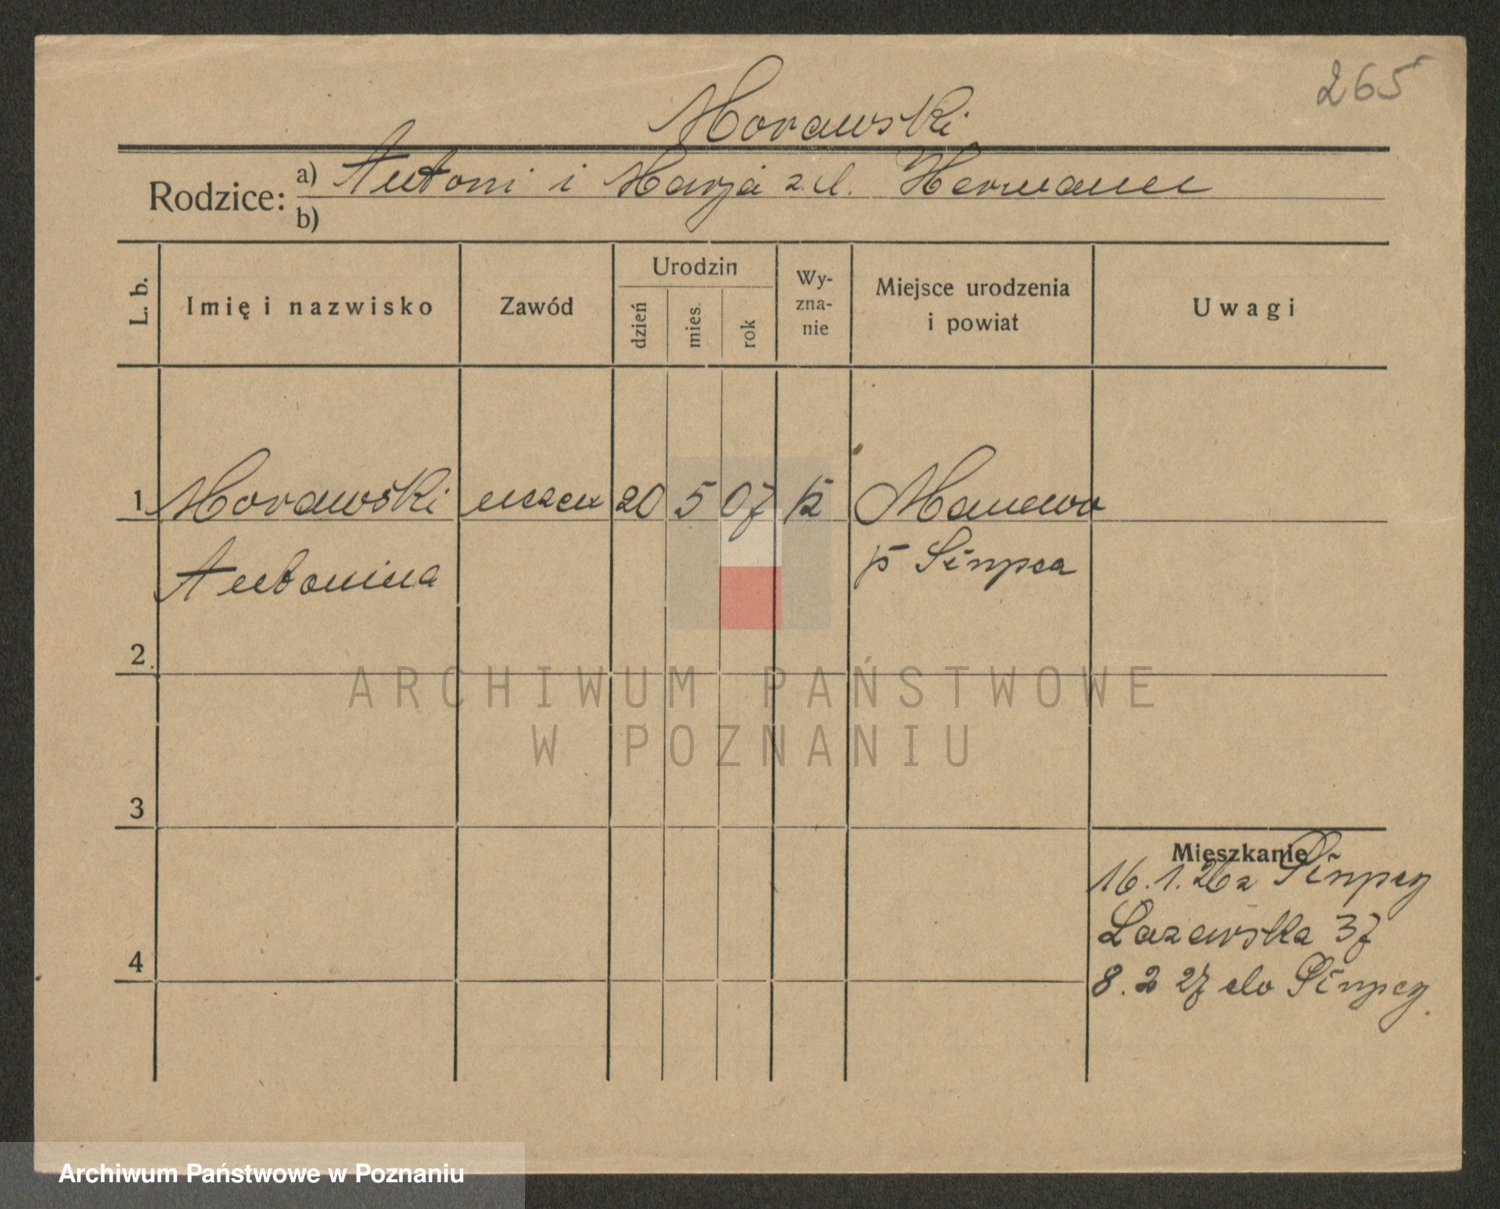 265
Morawski
Rodzice: a) Antoni i Marja z d. Hermann
b)
L. b. Imię i nazwisko Zawód Urodzin dzień mies. rok Wyznanie Miejsce urodzenia i powiat Uwagi
1 Morawski uczeń 20 5 07 Manewo
Antonina p Słupca
2
3
Mieszkanie
16.1.26 z Słupcy
4
8.2 27 do Słupcy.
ARCHIWUM PAŃSTWOWE
W POZNANIU
Archiwum Państwowe w Poznaniu